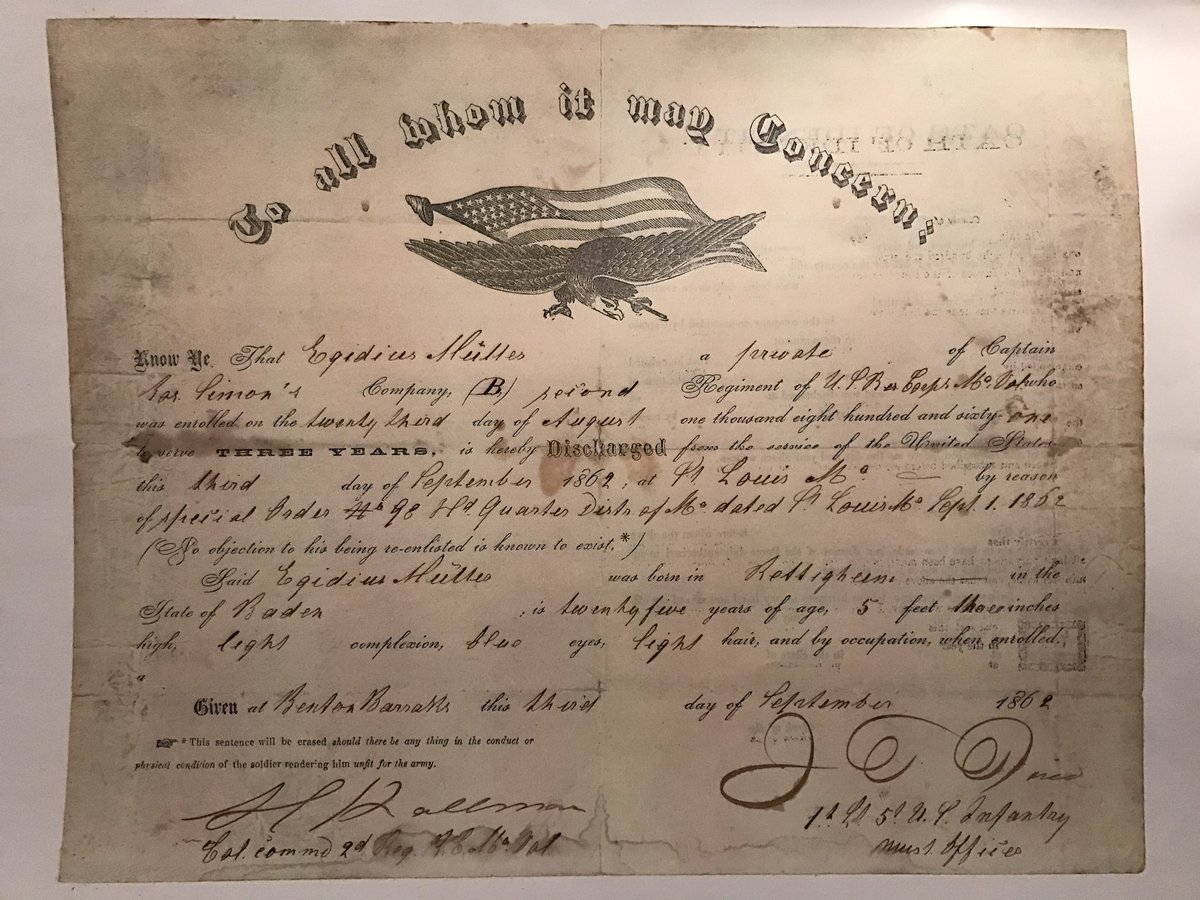 To all whom it may Concern,
Know Ye, That Egidius Müller a private of Captain
Jos. Simon's Company, (B,) second Regiment of U.S. Res Corps Mo. Vol who
was enrolled on the twenty third day of August one thousand eight hundred and sixty-one
to serve THREE YEARS, is hereby Discharged from the service of the United States
this third day of September 1862, at St Louis Mo by reason
of special Order No 98 Hd. Quarter Distr of Mo dated St. Louis Mo Sept. 1. 1862
(No objection to his being re-enlisted is known to exist.*)
Said Egidius Müller was born in Rettigheim in the
State of Baden, is twenty five years of age, 5 feet three inches
high, light complexion, blue eyes, light hair, and by occupation, when enrolled,
a
Given at Benton Barraks this third day of September 1862
* This sentence will be erased should there be any thing in the conduct or
physical condition of the soldier rendering him unfit for the army.
Kallman
Col. commd 2d Reg. Mo Vol
1st Lt 5th U.S. Infantry
Must. Officer